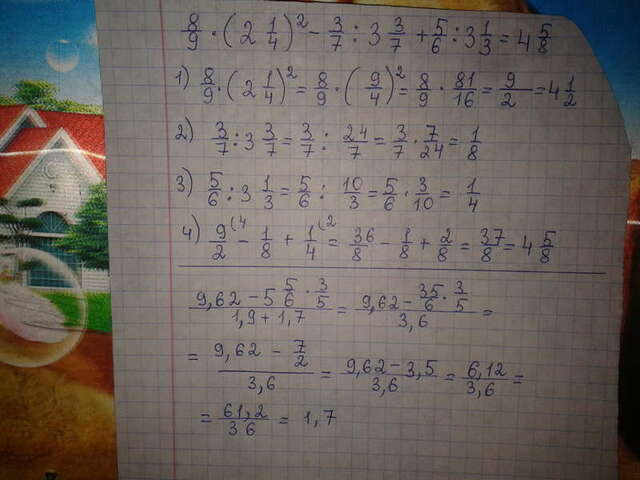 8/9 · (2 1/4)² - 3/7 : 3 3/7 + 5/6 : 3 1/3 = 4 5/8
1) 8/9 · (2 1/4)² = 8/9 · (9/4)² = 8/9 · 81/16 = 9/2 = 4 1/2
2) 3/7 : 3 3/7 = 3/7 : 24/7 = 3/7 · 7/24 = 1/8
3) 5/6 : 3 1/3 = 5/6 : 10/3 = 5/6 · 3/10 = 1/4
4) 9/2 (4 - 1/8 + 1/4 (2 = 36/8 - 1/8 + 2/8 = 37/8 = 4 5/8
(9,62 - 5 5/6 · 3/5)/(1,9 + 1,7) = (9,62 - 35/6 · 3/5)/3,6 =
= (9,62 - 7/2)/3,6 = (9,62 - 3,5)/3,6 = 6,12/3,6 =
= 61,2/36 = 1,7